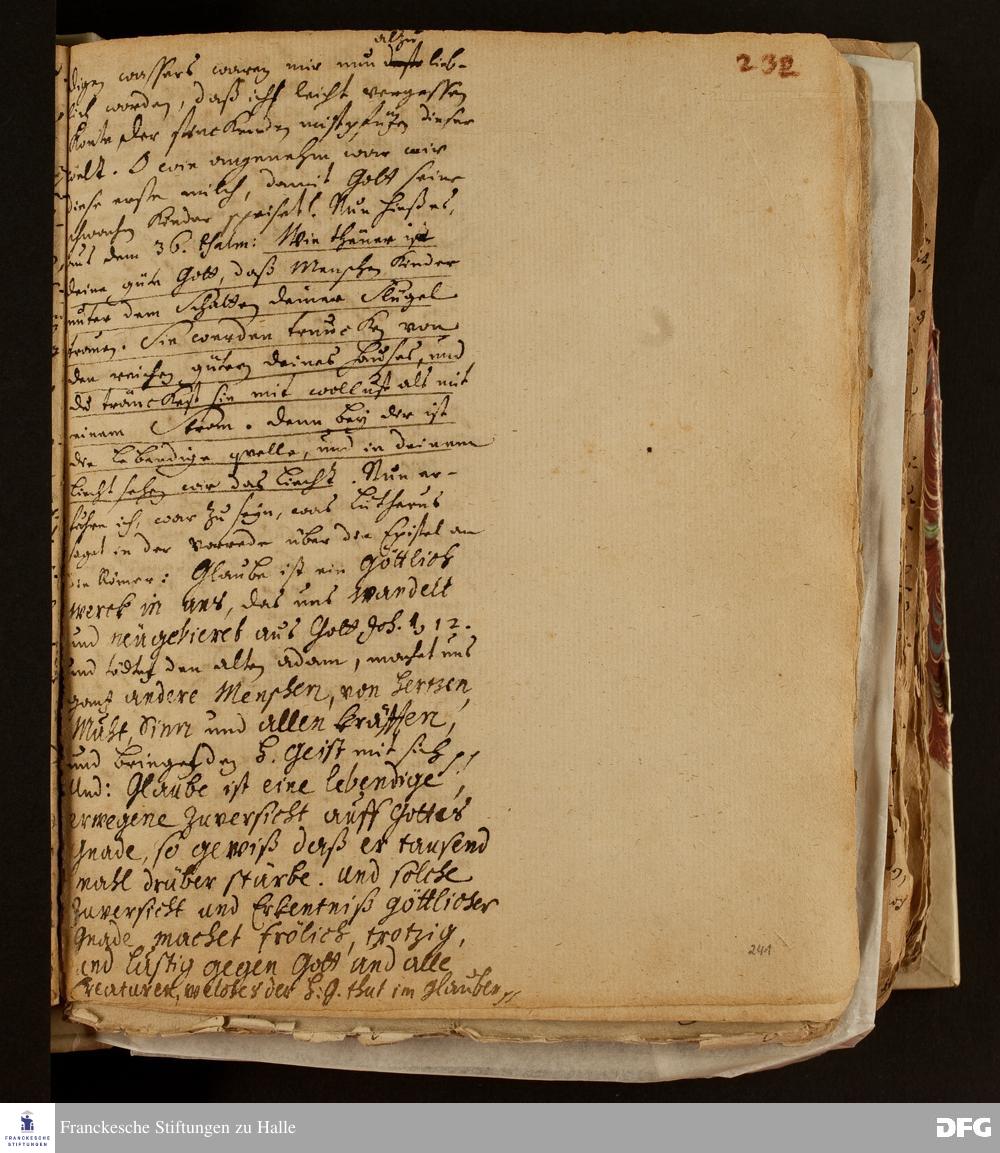 232
alzu
digen wassers waren mir nun lieb-
lich worden, daß ich leicht vergessen
konte der stinckenden mistpfützen dieser
welt. O wie angenehm war mir
diese erste milch, damit Gott seine
schwachen Kinder speiset! Nun hieß es,
aus dem 36. Psalm: Wie theuer ist
deine güte Gott, daß Menschen Kinder
unter dem Schatten deiner Flügel
trauen. Sie werden truncken von
den reichen gütern deines hauses, und
du tränckest sie mit wollust als mit
einem Strom. denn bey dir ist
die lebendige quelle, und in deinem
Liecht sehen wir das Liecht. Nun er-
fuhre ich, war zu seyn, was Lutherus
saget in der vorrede über die Epistel an
die Römer: Glaube ist ein göttlich
werck in uns, das uns wandelt
und neügebieret aus Gott Joh. 1, 12.
und tödtet den alten adam, machet uns
gantz andere Menschen, von hertzen,
Muht, Sinn und allen kräfften,
und bringet den h. Geist mit sich
Und: Glaube ist eine lebendige,
erwegene Zuversicht auff Gottes
Gnade, so gewiß daß er tausend
mahl drüber stürbe. und solche
Zuversicht und Erkentniß göttlicher
Gnade machet frölich, trotzig,
und lustig gegen Gott und alle
Creaturen, welches der h. g. thut im glauben
241
FRANCKESCHE
STIFTUNGEN
Franckesche Stiftungen zu Halle
DFG